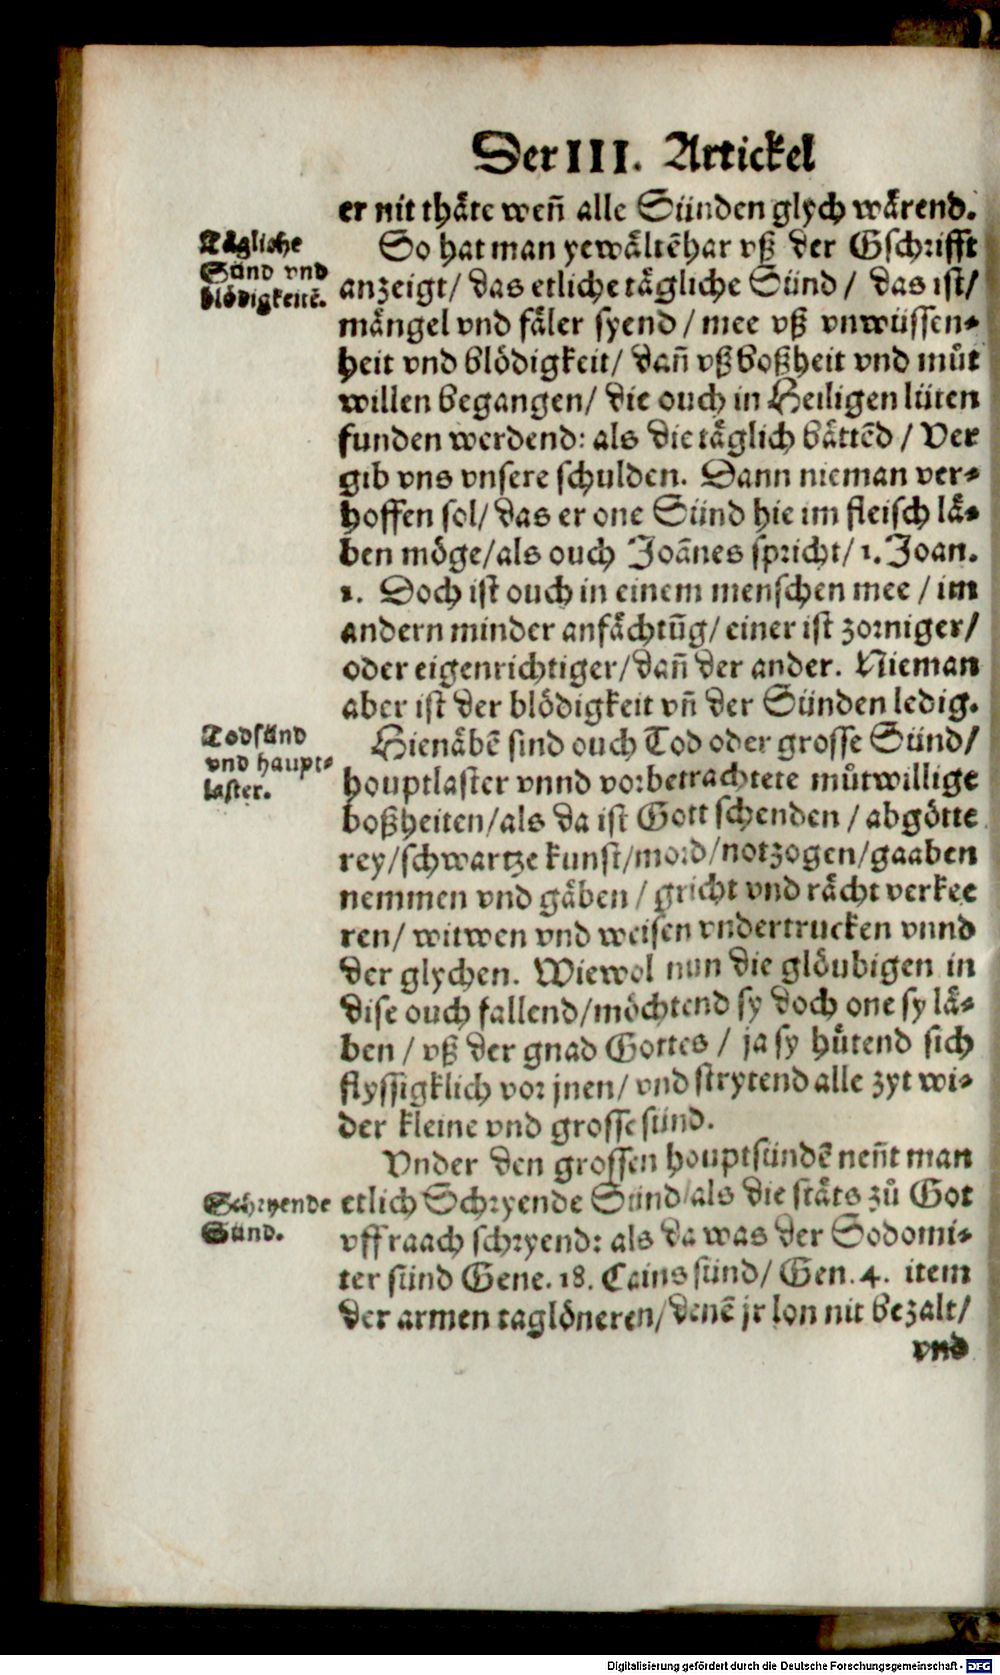 Der III. Artickel
er nit thäte weñ alle Sünden glych wärend.
Tägliche
Sünd vnd
blödigkeitẽ.
So hat man yewältẽhar vß der Gschrifft
anzeigt/ das etliche tägliche Sünd / das ist/
mängel vnd fäler syend / mee vß vnwüssen-
heit vnd blödigkeit/ dañ vß boßheit vnd můt
willen begangen/ die ouch in Heiligen lüten
funden werdend: als die täglich bättẽd / Ver
gib vns vnsere schulden. Dann nieman ver-
hoffen sol/ das er one Sünd hie im fleisch lä-
ben möge/als ouch Joãnes spricht/ 1. Joan.
1. Doch ist ouch in einem menschen mee / im
andern minder anfächtũg/ einer ist zorniger/
oder eigenrichtiger/dañ der ander. Nieman
aber ist der blödigkeit vñ der Sünden ledig.
Todsünd
vnd haupt-
laster.
Hienäbẽ sind ouch Tod oder grosse Sünd/
houptlaster vnnd vorbetrachtete můtwillige
boßheiten/als da ist Gott schenden / abgötte
rey/schwartze kunst/mord/notzogen/gaaben
nemmen vnd gäben / gricht vnd rächt verkee
ren/ witwen vnd weisen vndertrucken vnnd
der glychen. Wiewol nun die glöubigen in
dise ouch fallend/möchtend sy doch one sy lä-
ben / vß der gnad Gottes / ja sy hůtend sich
flyssigklich vor jnen/ vnd strytend alle zyt wi-
der kleine vnd grosse sünd.
Vnder den grossen houptsündẽ neñt man
Schryende
Sünd.
etlich Schryende Sünd/als die stäts zů Got
vff raach schryend: als da was der Sodomi-
ter sünd Gene. 18. Cains sünd/ Gen. 4. item
der armen taglöneren/ denẽ jr lon nit bezalt/
vnd
Digitalisierung gefördert durch die Deutsche Forschungsgemeinschaft - DFG